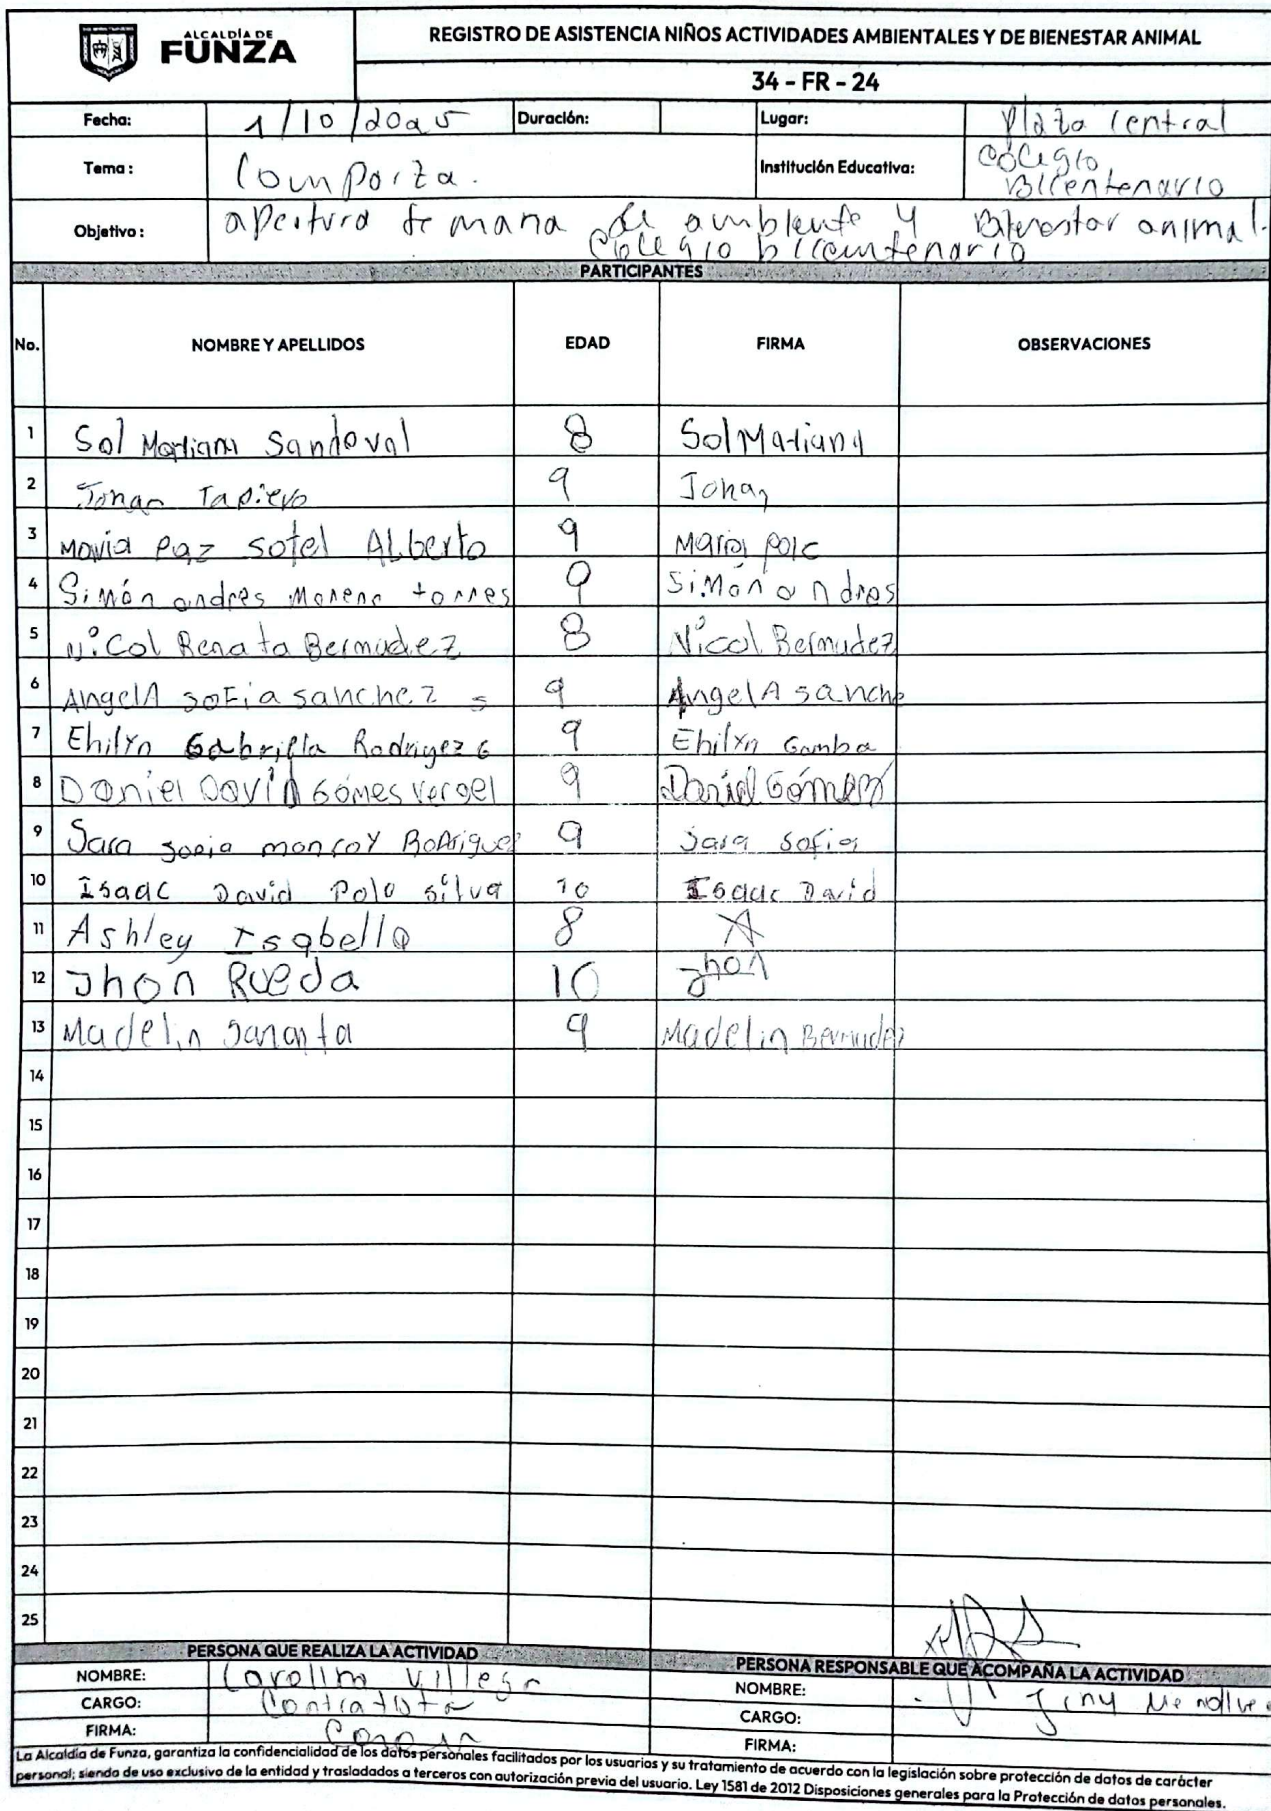 ALCALDÍA DE
FUNZA
REGISTRO DE ASISTENCIA NIÑOS ACTIVIDADES AMBIENTALES Y DE BIENESTAR ANIMAL
34 - FR - 24
Fecha: 1/10/2025 Duración: Lugar: Plaza Central
Tema: Comparza. Institución Educativa: Colegio
Bicentenario
Objetivo: apertura semana de ambiente y Bienestar animal.
Colegio bicentenario
PARTICIPANTES
No. NOMBRE Y APELLIDOS EDAD FIRMA OBSERVACIONES
1 Sol Mariana Sandoval 8 Sol Mariana
2 Johan Tapiero 9 Johan
3 Maria Paz sotel ALberto 9 Maria
4 Simón andres Moreno torres 9 Simón andres
5 Nicol Renata Bermudez 8 Nicol Bermudez
6 AngelA soFia sanchez s 9 AngelA sanche
7 Ehilyn Gabriella Rodriguez G 9 Ehilyn Gamba
8 Daniel David Gómes vergel 9 Daniel Gómez
9 Sara sopia monroy Rodriguez 9 Sara sofia
10 Isaac David Polo silva 10 Isaac David
11 Ashley Isabella 8 A
12 Jhon Rueda 10 Jhon
13 Madelin 9 Madelin Bermudez
14
15
16
17
18
19
20
21
22
23
24
25
PERSONA QUE REALIZA LA ACTIVIDAD PERSONA RESPONSABLE QUE ACOMPAÑA LA ACTIVIDAD
NOMBRE: Carolina Villega NOMBRE: Jiny
CARGO: Contratista CARGO:
FIRMA: FIRMA:
La Alcaldía de Funza, garantiza la confidencialidad de los datos personales facilitados por los usuarios y su tratamiento de acuerdo con la legislación sobre protección de datos de carácter
personal; siendo de uso exclusivo de la entidad y trasladados a terceros con autorización previa del usuario. Ley 1581 de 2012 Disposiciones generales para la Protección de datos personales.